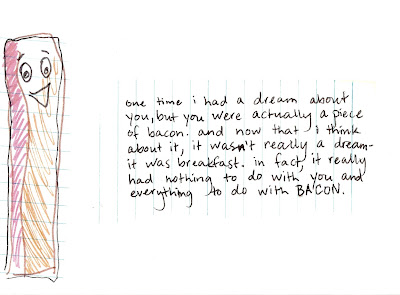 one time i had a dream about
you, but you were actually a piece
of bacon. and now that i think
about it, it wasn't really a dream-
it was breakfast. in fact, it really
had nothing to do with you and
everything to do with BACON.